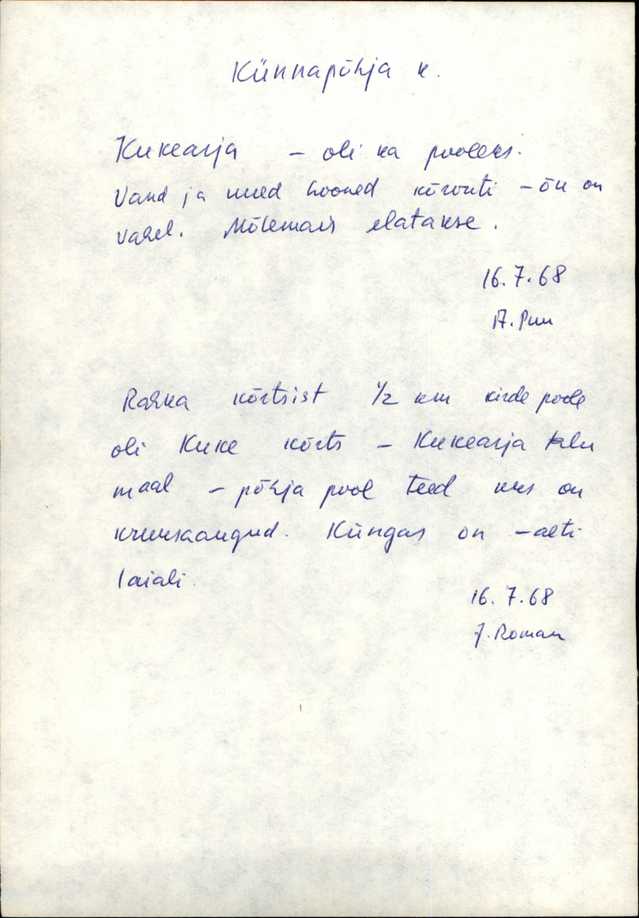 Künnapõhja k.
Kukearja – oli ka pooleks.
Vanad ja uued hooned kõrvuti – õu on
vahel. Mõlemais elatakse.
16.7.68
A. Puu
Rahka kõrtsist 1/2 km kirde poole
oli Kuke kõrts – Kukearja talu
maal – põhja pool teed kus on
kruusaaugud. Küngas on – aeti
laiali.
16.7.68
J. Roman